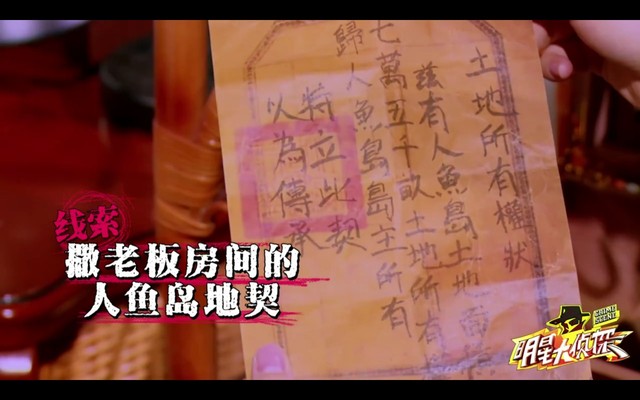 土地所有權狀
茲有人魚島土地面
七萬五千畝土地所有
歸人魚島島主所有
特立此契
以為傳承
线索
撒老板房间的
人鱼岛地契
CRIME
SCENE
明星大侦探